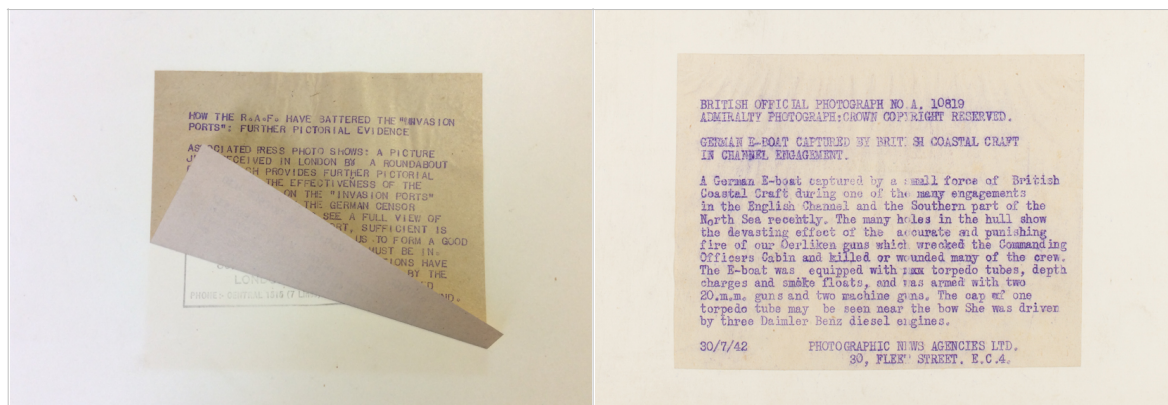 HOW THE R.A.F. HAVE BATTERED THE "INVASION
PORTS": FURTHER PICTORIAL EVIDENCE
ASSOCIATED PRESS PHOTO SHOWS: A PICTURE
RECEIVED IN LONDON BY A ROUNDABOUT
PROVIDES FURTHER PICTORIAL
THE EFFECTIVENESS OF THE
ON THE "INVASION PORTS"
THE GERMAN CENSOR
SEE A FULL VIEW OF
SUFFICIENT IS
US TO FORM A GOOD
MUST BE IN.
HAVE
BY THE
PHONE: CENTRAL 1515 (7
BRITISH OFFICIAL PHOTOGRAPH NO.A. 10819
ADMIRALTY PHOTOGRAPH:CROWN COPYRIGHT RESERVED.
GERMAN E-BOAT CAPTURED BY BRITISH COASTAL CRAFT
IN CHANNEL ENGAGEMENT.
A German E-boat captured by a small force of British
Coastal Craft during one of the many engagements
in the English Channel and the Southern part of the
North Sea recently. The many holes in the hull show
the devasting effect of the accurate and punishing
fire of our Oerliken guns which wrecked the Commanding
Officers Cabin and killed or wounded many of the crew.
The E-boat was equipped with xxx torpedo tubes, depth
charges and smoke floats, and was armed with two
20.m.m. guns and two machine guns. The cap of one
torpedo tube may be seen near the bow She was driven
by three Daimler Benz diesel engines.
30/7/42 PHOTOGRAPHIC NEWS AGENCIES LTD.
30, FLEET STREET. E.C.4.